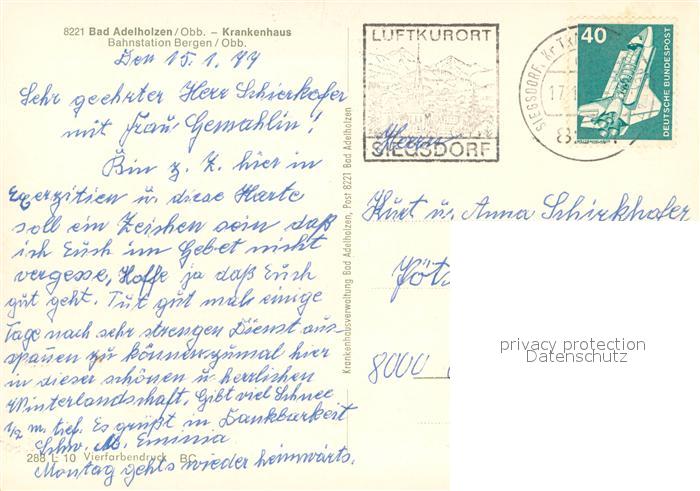 8221 Bad Adelholzen/Obb. – Krankenhaus
Bahnstation Bergen/Obb.
Den 15.1.77
Sehr geehrter Herr Schierkofer
mit Frau Gemahlin!
Bin z. Z. hier in
Exerzitien u. diese Karte
soll ein Zeichen sein daß
ich Euch im Gebet nicht
vergesse, Hoffe ja daß Euch
gut geht. Tut gut mal einige
Tage nach sehr strengen Dienst aus-
spannen zu können zumal hier
in dieser schönen u. herrlichen
Winterlandschaft. Gibt viel Schnee
1/2 m. tief. Es grüßt in Dankbarkeit
Schw. M.
Montag gehts wieder heimwärts.
288 L 10 Vierfarbendruck BC
Krankenhausverwaltung Bad Adelholzen, Post 8221 Bad Adelholzen
LUFTKURORT
SIEGSDORF
SIEGSDORF, Kr
17.1
8
40
DEUTSCHE BUNDESPOST
Herrn
Kurt u. Anna Schirkhofer
Pöts
8000
privacy protection
Datenschutz